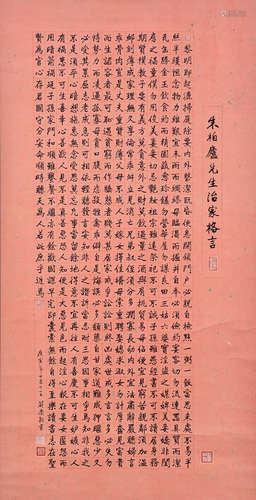 朱柏廬先生治家格言
黎明即起洒掃庭除要內外整潔既昏便息關鎖門戶必親自檢點一粥一飯當思來處不易半
絲半縷恒念物力維艱宜未雨而綢繆毋臨渴而掘井自奉必須儉約宴客切勿流連器具質而潔
瓦缶勝金玉飲食約而精園蔬愈珍饈勿營華屋勿謀良田三姑六婆實淫盜之媒婢美妾嬌非閨
房之福童僕勿用俊美妻妾切忌艷妝祖宗雖遠祭祀不可不誠子孫雖愚經書不可不讀居身務
期質樸教子要有義方莫貪意外之財莫飲過量之酒與肩挑貿易毋佔便宜見貧苦親鄰須加溫
卹刻薄成家理無久享倫常乖舛立見消亡兄弟叔侄須分多潤寡長幼內外宜法肅辭嚴聽婦言
乖骨肉豈是丈夫重貲財薄父母不成人子嫁女擇佳婿毋索重聘娶媳求淑女勿計厚奩見富貴
而生諂容者最可恥遇貧窮而作驕態者賤莫甚居家戒爭訟訟則終凶處世戒多言言多必失勿
恃勢力而凌逼孤寡毋貪口腹而恣殺牲禽乖僻自是悔誤必多頹惰自甘家道難成狎暱惡少久
必受其累屈志老成急則可相依輕聽發言安知非人之譖愬當忍耐三思因事相爭焉知非我之
不是須平心暗想施惠無念受恩莫忘凡事當留餘地得意不宜再往人有喜慶不可生妒嫉心人
有禍患不可生喜幸心善欲人見不是真善惡恐人知便是大惡見色而起淫心報在妻女匿怨而
用暗箭禍延子孫家門和順雖饔飧不繼亦有餘歡國課早完即囊橐無餘自得至樂讀書志在聖
賢為官心存君國守分安命順時聽天為人若此庶乎近焉